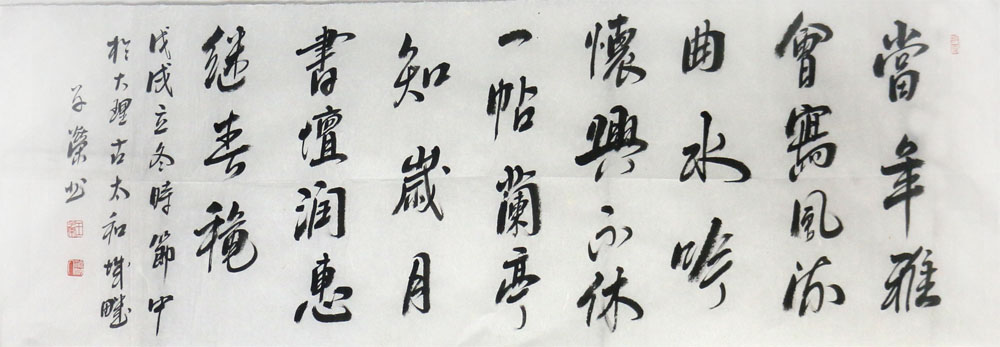 當年雅
會寫風流
曲水吟
懷興不休
一帖蘭亭
知歲月
書壇潤惠
繼春穐
戊戌立冬時節中
於大理古太和城畔
榮书